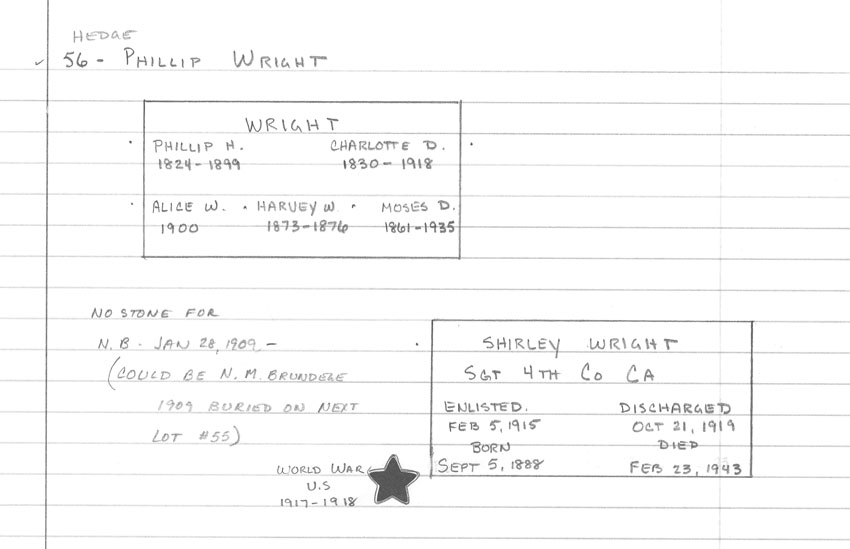 HEDGE
56 - PHILLIP WRIGHT
WRIGHT
PHILLIP H. CHARLOTTE D.
1824-1899 1830-1918
ALICE W. · HARVEY W. · MOSES D.
1900 1873-1876 1861-1935
NO STONE FOR
N. B. JAN 28, 1909 -
(COULD BE N. M. BRUNDEGE
1909 BURIED ON NEXT
LOT #55)
SHIRLEY WRIGHT
SGT 4TH CO CA
ENLISTED. DISCHARGED
FEB 5, 1915 OCT 21, 1919
BORN DIED
SEPT 5, 1888 FEB 23, 1943
WORLD WAR
U.S
1917-1918